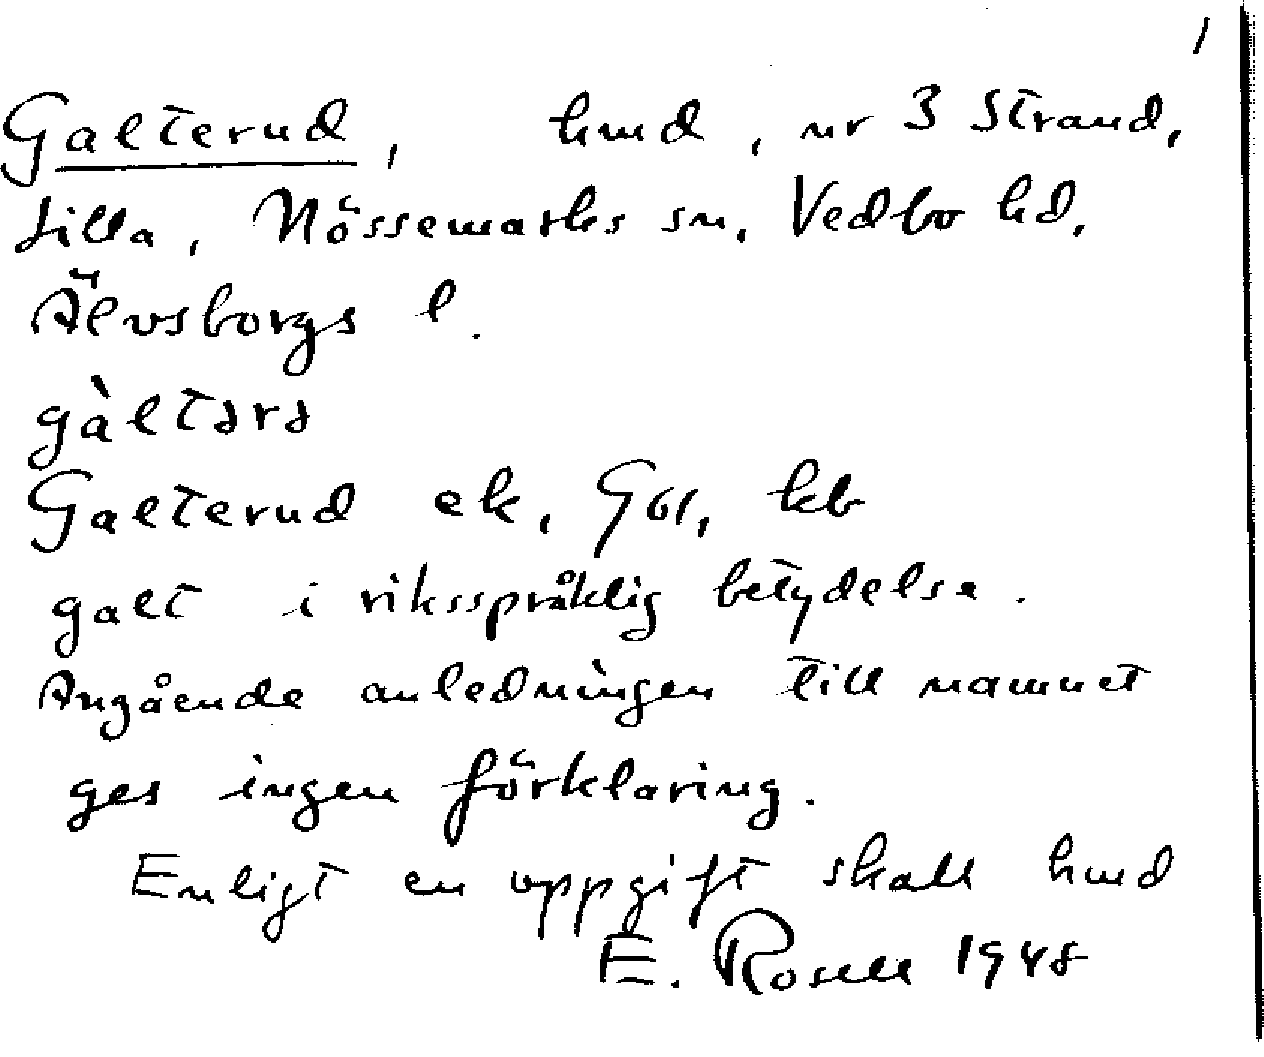 1
Galterud, hmd, nr 3 Strand,
Lilla, Nössemarks sn, Vedbo hd,
Älvsborgs l.
gàltərə
Galterud ek, GK, kb
galt i riksspråklig betydelse.
Angående anledningen till namnet
ges ingen förklaring.
Enligt en uppgift skall hmd
E. Rosell 1948